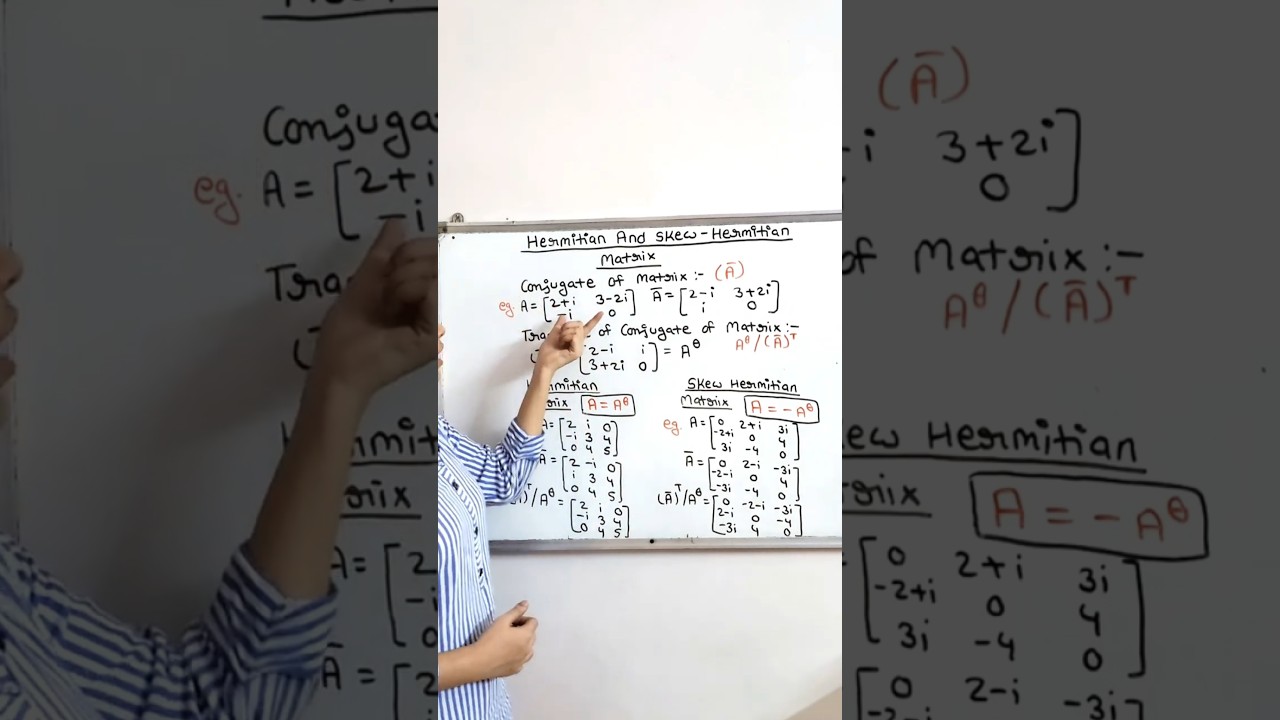 Hermitian And Skew-Hermitian
Matrix
Conjugate of Matrix :- (Ā)
eg. A = [2+i 3-2i] Ā = [2-i 3+2i]
-i 0 i 0
of Conjugate of Matrix :-
A^θ/(Ā)^T
[2-i i] = A^θ
3+2i 0
Skew Hermitian
A = A^θ
Matrix A = -A^θ
A = [2 i 0]
-i 3 4
0 4 5
Ā = [2 -i 0]
i 3 4
0 4 5
/A^θ = [2 i 0]
-i 3 4
0 4 5
eg. A = [0 2+i 3i]
-2+i 0 4
3i -4 0
Ā = [0 2-i -3i]
-2-i 0 4
-3i -4 0
(Ā)^T/A^θ = [0 -2-i -3i]
2-i 0 -4
-3i 4 0